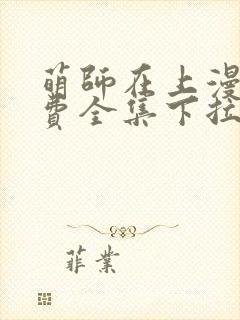 萌师在上漫
费全集下拉
菲業